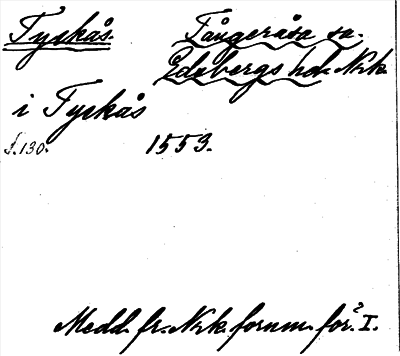 Tyskås. Tångeråsa sn.
Edsbergs hd. Nrk.
i Tyskås
f. 130. 1553.
Medd. fr. Nrk. fornm. för. I.